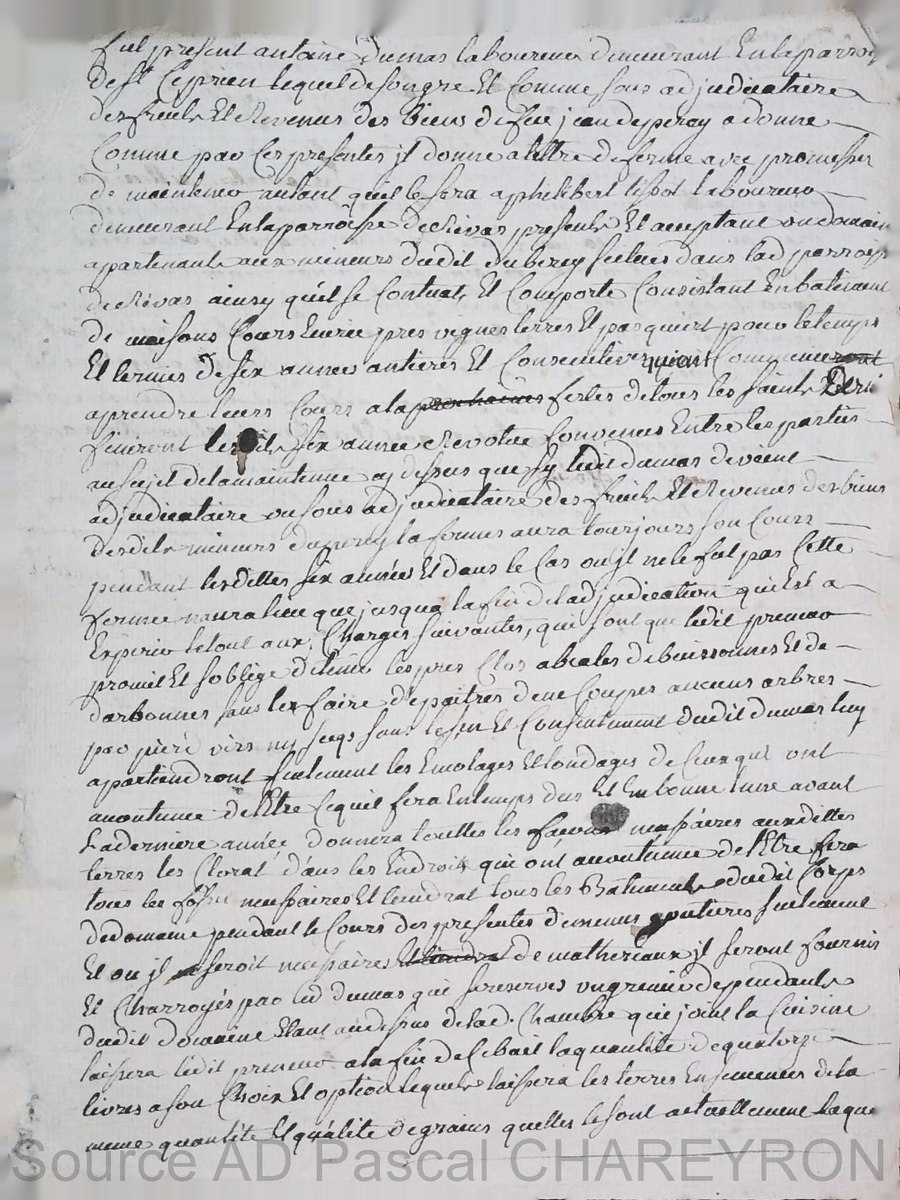 fut présent antoine dumas laboureur demeurant En la parroi
de st Ceprien lequel de son gre Et Comme sous adjudicataire
des fruits Et Revenus des biens de feu jean duperay a donné
Comme par Ces presentes jl donne a tiltre de ferme avec promesse
de maintenir autant quil le fera a philibert tissot laboureur
demeurant En la parroisse de Rivas present Et aceptant un domain
apartenant aux mineurs dudit duperey scitues dans lad parrois
de Rivas ainsy quil se Contient Et Comporte Consistant En batiment
de maisons Cours Ecurie pres vignes terres Et pasquiert pour le temps
Et termes de six années antieres Et Consecutives qui ont Commencé
a prendre leurs Cours a la prochaines festes de tous les saints
finiront lesdits six année Revolue Convenus Entre les parties
au sujet de la maintenue cy dessus que sy ledit dumas devient
adjudicataire ou sous adjudicataire des fruits Et Revenus des biens
desdits mineurs duperey la ferme aura tourjours son Cours
pendant lesdittes six années Et dans le Cas ou jl ne le fut pas Cette
ferme naura lieu que jusqua la fin de ladjudication qui Est a
Expirer le tout aux Charges suivantes, qui sont que ledit preneur
promet Et soblige de tenir les pres Clos de buissonnes Et de
darbonnes sans les faire depaitres de ne Couper aucuns arbres
par pied vifs ny secqs sans le sceu Et Consentement dudit dumas luy
apartiendront seulement les Emolages Et tondages de Ceux qui ont
acoutumé dEtre Ce quil fera En temps deus Et En bonne lune avant
La derniere année donnera touttes les façons nessaires auxdittes
terres les Clorat dans les Endroits qui ont acoutumé de lEtre fera
tous les fossés nessaires Et tiendrat tous les Batiments dudit Corps
de domaine pendant le Cours des presentes de menus goutieres seulement
Et ou jl seroit nessaires de matheriaux jl seront fournis
Et Charroyés par led dumas qui se reserves un grenier dependant
dudit domaine Etant au dessus de lad. Chambre qui joint la Cuisine
laissera ledit preneur a la fin de Ce bail la quantité de quatorze
livres a son Choix Et option lequel laissera les terres Ensemencées de la
meme quantité Et qualité de grains quelles le sont actuellement laque
Source AD Pascal CHAREYRON